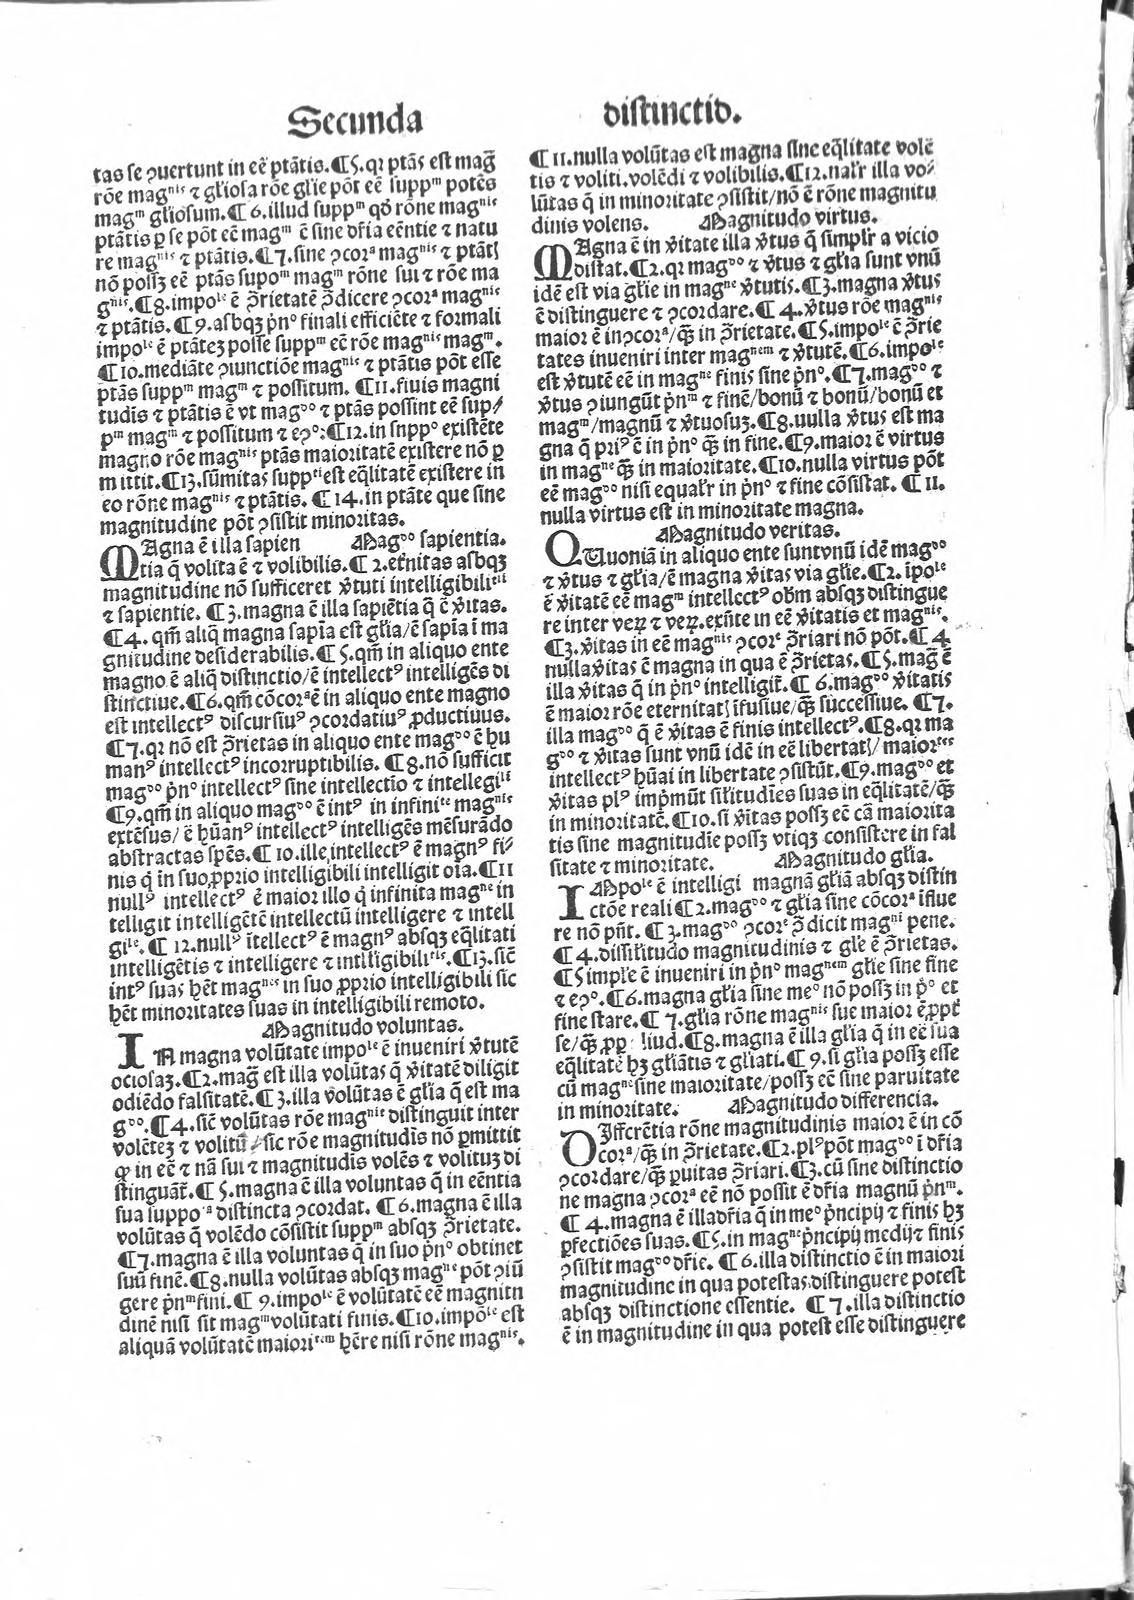 Secunda distinctio.
tas se ꝯuertunt in eē ptātis.¶5.qꝛ ptās est mag̃
rōe magⁿⁱˢ ⁊ gl̓iosa rōe gl̓ie pōt eē suppᵐ potēs
magᵐ gl̓iosum.¶6.illud suppᵐ qđ rōne magⁿⁱˢ
ptātis ꝑ se pōt eē magᵐ ē sine dr̄ia eēntie ⁊ natu
re magⁿⁱˢ ⁊ ptātis.¶7.sine ꝯcorᵃ magⁿⁱˢ ⁊ ptātꝭ
nō possꝫ eē ptās supoᵐ magᵐ rōne sui ⁊ rōe ma
gⁿⁱˢ.¶8.impoˡᵉ ē ꝯ̄rietatē p̄dicere ꝯcorᵃ magⁿⁱˢ
⁊ ptātis.¶9.absqꝫ p̄n° finali efficiēte ⁊ formali
impoˡᵉ ē ptāteꝫ posse suppᵐ eē rōe magⁿⁱˢ magᵐ.
¶10.mediāte ꝯiunctiōe magⁿⁱˢ ⁊ ptātis pōt esse
ptās suppᵐ magᵐ ⁊ possitum. ¶11.finis magni
tudis ⁊ ptātis ē vt magᵈᵒ ⁊ ptās possint eē sup⸗
pᵐ magᵐ ⁊ possitum ⁊ eꝯ°:¶12.in snpp° existēte
magno rōe magⁿⁱˢ ptās maioritatē existere nō ꝑ
mittit.¶13.sūmitas suppᵗⁱ est eq̄litatē existere in
eo rōne magⁿⁱˢ ⁊ ptātis. ¶14.in ptāte que sine
magnitudine pōt ꝯsistit minoritas.
MAgna ē illa sapien Magᵈᵒ sapientia.
tia q̄ volita ē ⁊ volibilis.¶2.et̓nitas absqꝫ
magnitudine nō sufficeret v̓tuti intelligibiliᵗᵃᵗⁱ
⁊ sapientie. ¶3.magna ē illa sapiētia q̄ ē v̓itas.
¶4. qm̄ aliq̄ magna sapīa est gl̓ia/ē sapīa ī ma
gnitudine desiderabilis.¶5.qm̄ in aliquo ente
magno ē aliq̄ distinctio/ē intellectꝰ intelligēs di
stinctiue.¶6.qm̄ cōcorᵃ ē in aliquo ente magno
est intellectꝰ discursiuꝰ ꝯcordatiuꝰ ꝓductiuus.
¶7.qꝛ nō est ꝯ̄rietas in aliquo ente magᵈᵒ ē hu
manꝰ intellectꝰ incorruptibilis. ¶8.nō sufficit
magᵈᵒ p̄n° intellectꝰ sine intellectio ⁊ intellegiˡⁱ
¶9.qm̄ in aliquo magᵈᵒ ē intꝰ in infiniᵗᵉ magⁿⁱˢ
extēsus/ ē hūanꝰ intellectꝰ intelligēs mēsurādo
abstractas spēs.¶10.ille intellectꝰ ē magnꝰ fi⸗
nis q̄ in suo ꝓprio intelligibili intelligit oīa.¶11
nullꝰ intellectꝰ ē maior illo q̄ infinita magⁿᵉ in
telligit intelligētē intellectū intelligere ⁊ intell
giˡᵉ.¶12.nullꝰ ītellectꝰ ē magnꝰ absqꝫ eq̄litati
intelligētis ⁊ intelligere ⁊ intll̓igibiliᵗᵃᵗⁱˢ.¶13.sic̄
intꝰ suas hēt magⁿᵉˢ in suo ꝓprio intelligibili sic
hēt minoritates suas in intelligibili remoto.
Magnitudo voluntas.
IN magna volūtate impoˡᵉ ē inueniri v̓tutē
ociosaꝫ.¶2.mag̃ est illa volūtas q̄ v̓itatē diligit
odiēdo falsitatē.¶3.illa volūtas ē gl̓ia q̄ est ma
gᵈᵒ.¶4.sic̄ volūtas rōe magⁿⁱˢ distinguit inter
volēteꝫ ⁊ volitū/sic rōe magnitudīs nō ꝑmittit
ꝙ in eē ⁊ nā sui ⁊ magnitudīs volēs ⁊ volituꝫ di
stinguāt̓.¶5.magna ē illa voluntas q̄ in eēntia
sua suppoᵗᵃ distincta ꝯcordat. ¶6.magna ē illa
volūtas q̄ volēdo cōsistit suppᵐ absqꝫ ꝯ̄rietate.
¶7.magna ē illa voluntas q̄ in suo p̄n° obtinet
suū finē.¶8.nulla volūtas absqꝫ magⁿᵉ pōt ꝯiū
gere p̄nᵐ fini.¶9.impoˡᵉ ē volūtatē eē magnitn
dinē nisi sit magᵐ volūtati finis.¶10.impōˡᵉ est
aliquā volūtatē maioriᵗᵃᵗᵉᵐ hēre nisi rōne magⁿⁱˢ.
¶11.nulla volūtas est magna sine eq̄litate volē
tis ⁊ voliti.volēdi ⁊ volibilis.¶12.nal̓r illa vo⸗
lūtas q̄ in minoritate ꝯsistit/nō ē rōne magnitu
dinis volens. Magnitudo virtus.
MAgna ē in v̓itate illa v̓tus q̄ simpl̓r a vicio
distat.¶2.qꝛ magᵈᵒ ⁊ v̓tus ⁊ gl̓ia sunt vnū
idē est via gl̓ie in magⁿᵉ v̓tutis.¶3.magna v̓tus
ē distinguere ⁊ ꝯcordare.¶4.v̓tus rōe magⁿⁱˢ
maior ē in ꝯcorᵃ/q̄ꝫ in ꝯ̄rietate.¶5.impoˡᵉ ē ꝯ̄rie
tates inueniri inter magⁿᵉᵐ ⁊ v̓tutē.¶6.impoˡᵉ
est v̓tutē eē in magⁿᵉ finis sine p̄n°.¶7.magᵈᵒ ⁊
v̓tus ꝯiungūt p̄nᵐ ⁊ finē/bonū ⁊ bonū/bonū et
magᵐ/magnū ⁊ v̓tuosuꝫ.¶8.uulla v̓tus est ma
gna q̄ priꝰ ē in p̄n° q̄ꝫ in fine.¶9.maior ē virtus
in magⁿᵉ q̄ꝫ in maioritate.¶10.nulla virtus pōt
eē magᵈᵒ nisi equal̓r in p̄n° ⁊ fine cōsistat. ¶11.
nulla virtus est in minoritate magna.
Magnitudo veritas.
QUuoniā in aliquo ente suntvnū idē magᵈᵒ
⁊ v̓tus ⁊ gl̓ia/ē magna v̓itas via gl̓ie.¶2.īpoˡᵉ
ē v̓itatē eē magᵐ intellectꝰ obm̄ absqꝫ distingue
re inter veꝝ ⁊ veꝝ.exn̄te in eē v̓itatis et magⁿⁱˢ.
¶3.v̓itas in eē magⁿⁱˢ ꝯcorᵉ ꝯ̄riari nō pōt.¶4
nulla v̓itas ē magna in qua ē ꝯ̄rietas.¶5.mag̃ ē
illa v̓itas q̄ in p̄n° intelligit̓.¶6.magᵈᵒ v̓itatis
ē maior rōe eternitatꝭ īfusiue/q̄ꝫ successiue. ¶7.
illa magᵈᵒ q̄ ē v̓itas ē finis intellectꝰ.¶8.qꝛ ma
gᵈᵒ ⁊ v̓itas sunt vnū idē in eē libertatꝭ/ maiorᵗᵃˢ
intellectꝰ hūai in libertate ꝯsistūt.¶9.magᵈᵒ et
v̓itas plꝰ imp̄mūt sil̓itudīes suas in eq̄litatē/q̄ꝫ
in minoritatē.¶10.si v̓itas possꝫ eē cā maiorita
tis sine magnitudīe possꝫ vtiqꝫ consistere in fal
sitate ⁊ minoritate. Magnitudo gl̓ia.
IMpoˡᵉ ē intelligi magnā gl̓iā absqꝫ distin
ctōe reali¶2.magᵈᵒ ⁊ gl̓ia sine cōcorᵃ īflue
re nō pn̄t. ¶3.magᵈᵒ ꝯcorᵉ p̄dicit magⁿⁱ pene.
¶4.dissil̓itudo magnitudinis ⁊ gl̓e ē ꝯ̄rietas.
¶5 impl̓e ē inueniri in p̄n° magⁿᵉᵐ gl̓ie sine fine
⁊ eꝯ°.¶6.magna gl̓ia sine me° nō possꝫ in p̄° et
fine stare.¶7.gl̓ia rōne magⁿⁱˢ sue maior ē ꝓpt̓
se/q̄ꝫ ꝓp̄ aliud.¶8.magna ē illa gl̓ia q̄ in eē sua
eq̄litatē hꝫ gl̓iātis ⁊ gl̓iati.¶9.si gl̓ia possꝫ esse
cū magⁿᵉ sine maioritate/possꝫ eē sine paruitate
in minoritate. Magnitudo differencia.
DIffcrētia rōne magnitudinis maior ē in cō
corᵃ/q̄ꝫ in ꝯ̄rietate.¶2.plꝰ pōt magᵈᵒ ī dr̄ia
ꝯcordare/q̄ꝫ ꝑuitas ꝯ̄riari.¶3.cū sine distinctio
ne magna ꝯcorᵃ eē nō possit ē dr̄ia magnū p̄nᵐ.
¶4.magna ē illa dr̄ia q̄ in me° p̄ncipij ⁊ finis hꝫ
ꝑfectiōes suas.¶5.in magⁿᵉ p̄ncipij medij ⁊ finis
ꝯsistit magᵈᵒ dr̄ie. ¶6.illa distinctio ē in maiori
magnitudine in qua potestas.distinguere potest
absqꝫ distinctione essentie. ¶7.illa distinctio
ē in magnitudine in qua potest esse distinguere